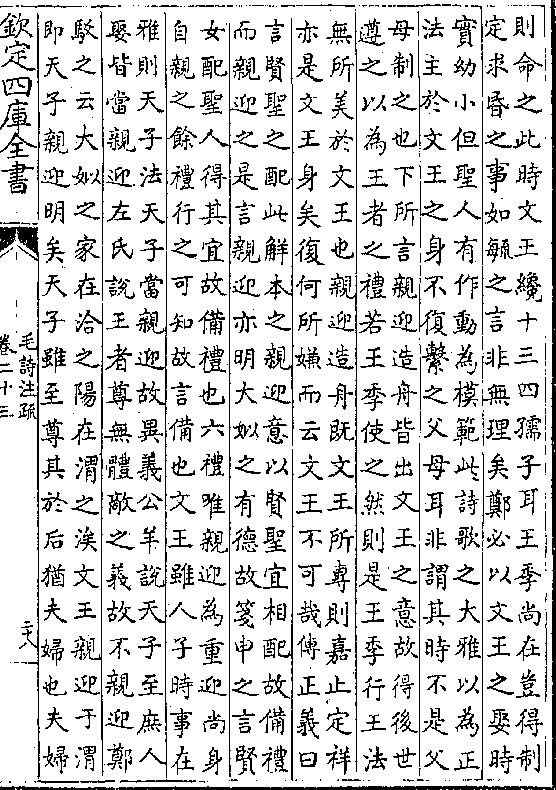 則命之此時文王纔十三四孺子耳王季尚在豈得制
定求昏之事如毓之言非無理矣鄭必以文王之娶時
實幼小但聖人有作動為模範此詩歌之大雅以為正
法主於文王之身不復繫之父母耳非謂其時不是父
母制之也下所言親迎造舟皆出文王之意故得後世
遵之以為王者之禮若王季使之然則是王季行王法
無所美於文王也親迎造舟既文王所專則嘉止定祥
亦是文王身矣復何所嫌而云文王不可哉傳正義曰
言賢聖之配此解本之親迎意以賢聖宜相配故備禮
而親迎之是言親迎亦明大姒之有德故箋申之言賢
女配聖人得其宜故備禮也六禮唯親迎為重迎尚身
自親之餘禮行之可知故言備也文王雖人子時事在
雅則天子法天子當親迎故異義公羊說天子至庶人
娶皆當親迎左氏說王者尊無體敵之義故不親迎鄭
駁之云大姒之家在洽之陽在渭之涘文王親迎于渭
即天子親迎明矣天子雖至尊其於后猶夫婦也夫婦
欽定四庫全書
毛詩注疏
卷二十三
二十八